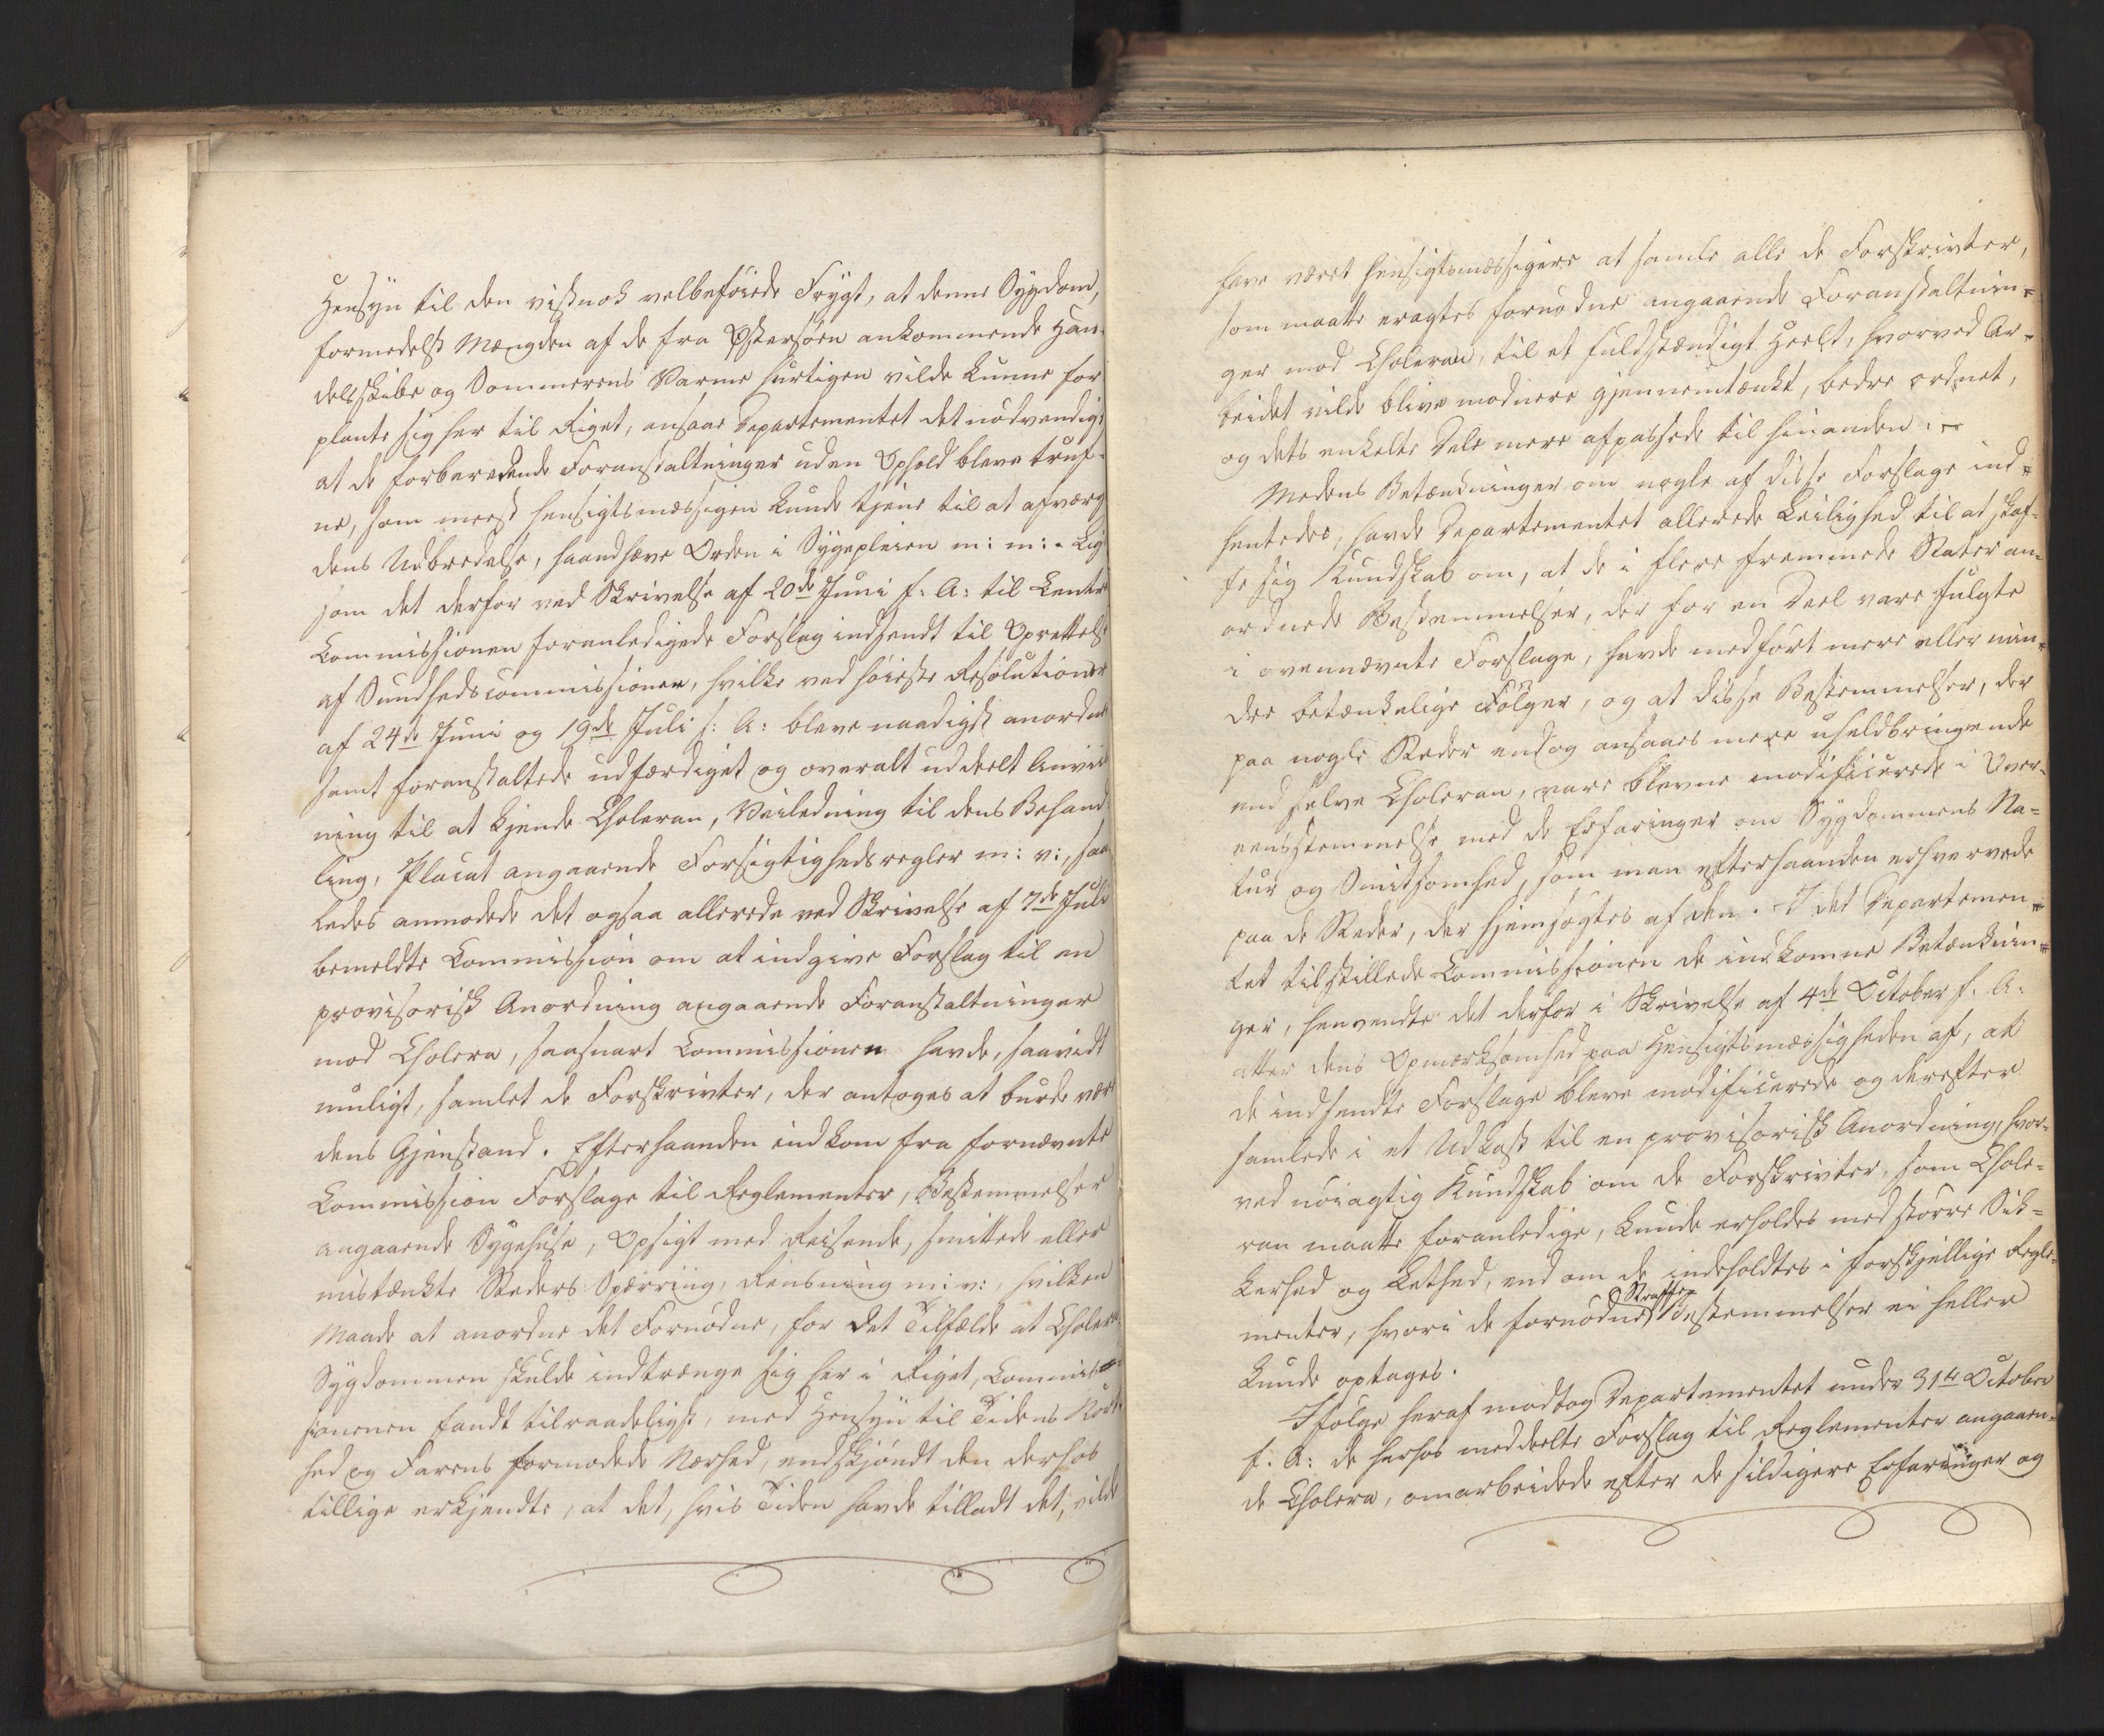 Hensyn til den vistnok velbeføiede Frygt, at denne Sygdom,
formedelst Mængden af de fra Østersøen ankommende Han-
delsskibe og Sommerens Varme hurtigen vilde kunne for
plante sig her til Riget, ansaae Departementet det nødvendigt
at de forberedende Foranstaltninger uden Ophold bleve truf-
ne, som meest hensigtsmæssigen kunde tjene til at afværge
dens Udbredelse, haandhæve Orden i Sygepleien m: m: - Lige
som det derfor ved Skrivelse af 20de Juni f. A: til Central
Commissionen foranledigede Forslag indsendt til Oprettelse
af Sundhedscommissioner, hvilke ved høieste Resolutioner
af 24de Juni og 19de Juli s: A: bleve naadigst anordnede
samt foranstaltede udfærdiget og overalt uddeelt Anviis
ning til at kjende Choleran, Veiledning til dens Behand-
ling, Placat angaaende Forsigtighedsregler m: v:, saa
ledes anmodede det ogsaa allerede ved Skrivelse af 7de Juli
bemeldte Commission om at indgive Forslag til en
provisorisk Anordning angaaende Foranstaltninger
mod Cholera, saasnart Commissionen havde, saavidt
muligt, samlet de Forskrivter, der antoges at burde være
dens Gjenstand. Efterhaanden indkom fra fornævnte
Commission Forslage til Reglementer, Bestemmelser
angaaende Sygehuse, Opsigt med Reisende, smittede eller
mistænkte Steders Spærring, Rensning m: v:, hvilken
Maade at anordne det Fornødne, for det Tilfælde at Cholera
Sygdommen skulde indtrænge sig her i Riget, Commis-
sionenen fandt tilraadeligst, med Hensyn til Tidens Kort-
hed og Farens formodede Nærhed, endskjøndt den derhos
tillige erkjendte, at det, hvis Tiden havde tilladt det, vilde
have været hensigtsmæssigere at samle alle de Forskrivter,
som maatte eragtes fornødne angaaende Foranstaltnin-
ger mod Choleran, til et fuldstændigt Heelt, hvorved Ar-
beidet vilde blive modnere gjennemtænkt, bedre ordnet,
og dets enkelte Dele mere afpassede til hinanden. -
Medens Betænkninger om nogle af disse Forslage ind-
hentedes, havde Departementet allerede Leilighed til at skaf-
fe sig Kundskab om, at de i flere fremmede Stater an-
ordnede Bestemmelser, der for en Deel vare fulgte
i ovennævnte Forslage, havde medført mere eller min-
dre betænkelige Følger, og at disse Bestemmelser, der
paa nogle Steder endog ansaaes mere uheldbringende
end selve Choleran, vare blevne modificerede i Over-
eensstemmelse med de Erfaringer om Sygdommens Na-
tur og Smitsomhed, som man efterhaanden erhvervede
paa de Steder, der hjemsøgtes af den. I det Departemen-
tet tilstillede Commissionen de indkomne Betænknin-
ger, henvendte det derfor i Skrivelse af 4de October f. A:
atter dens Opmærksomhed paa Hensigtsmæssigheden af, at
de indsendte Forslage bleve modificerede og derefter
samlede i et Udkast til en provisorisk Anordning, hvor-
ved nøiagtig Kundskab om de Forskrivter, som Chole-
ran maatte foranledige, kunde erholdes med større Sik-
kerhed og Lethed, end om de indeholdtes i forskjellige Regle-
menter, hvori de fornødne Straffe Bestemmelser ei heller
kunde optages.
Ifølge heraf modtog Departementet under 31te October
f. A: de herhos meddeelte Forslag til Reglementer angaaen-
de Cholera, omarbeidede efter de sildigere Erfaringer og